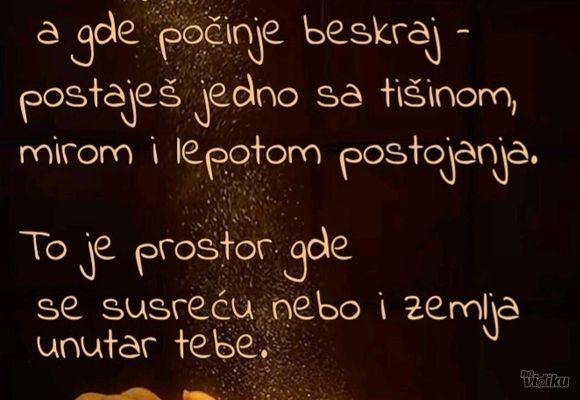 a gde počinje beskraj -
postaješ jedno sa tišinom,
mirom i lepotom postojanja.
To je prostor gde
se susreću nebo i zemlja
unutar tebe.
na Vidiku